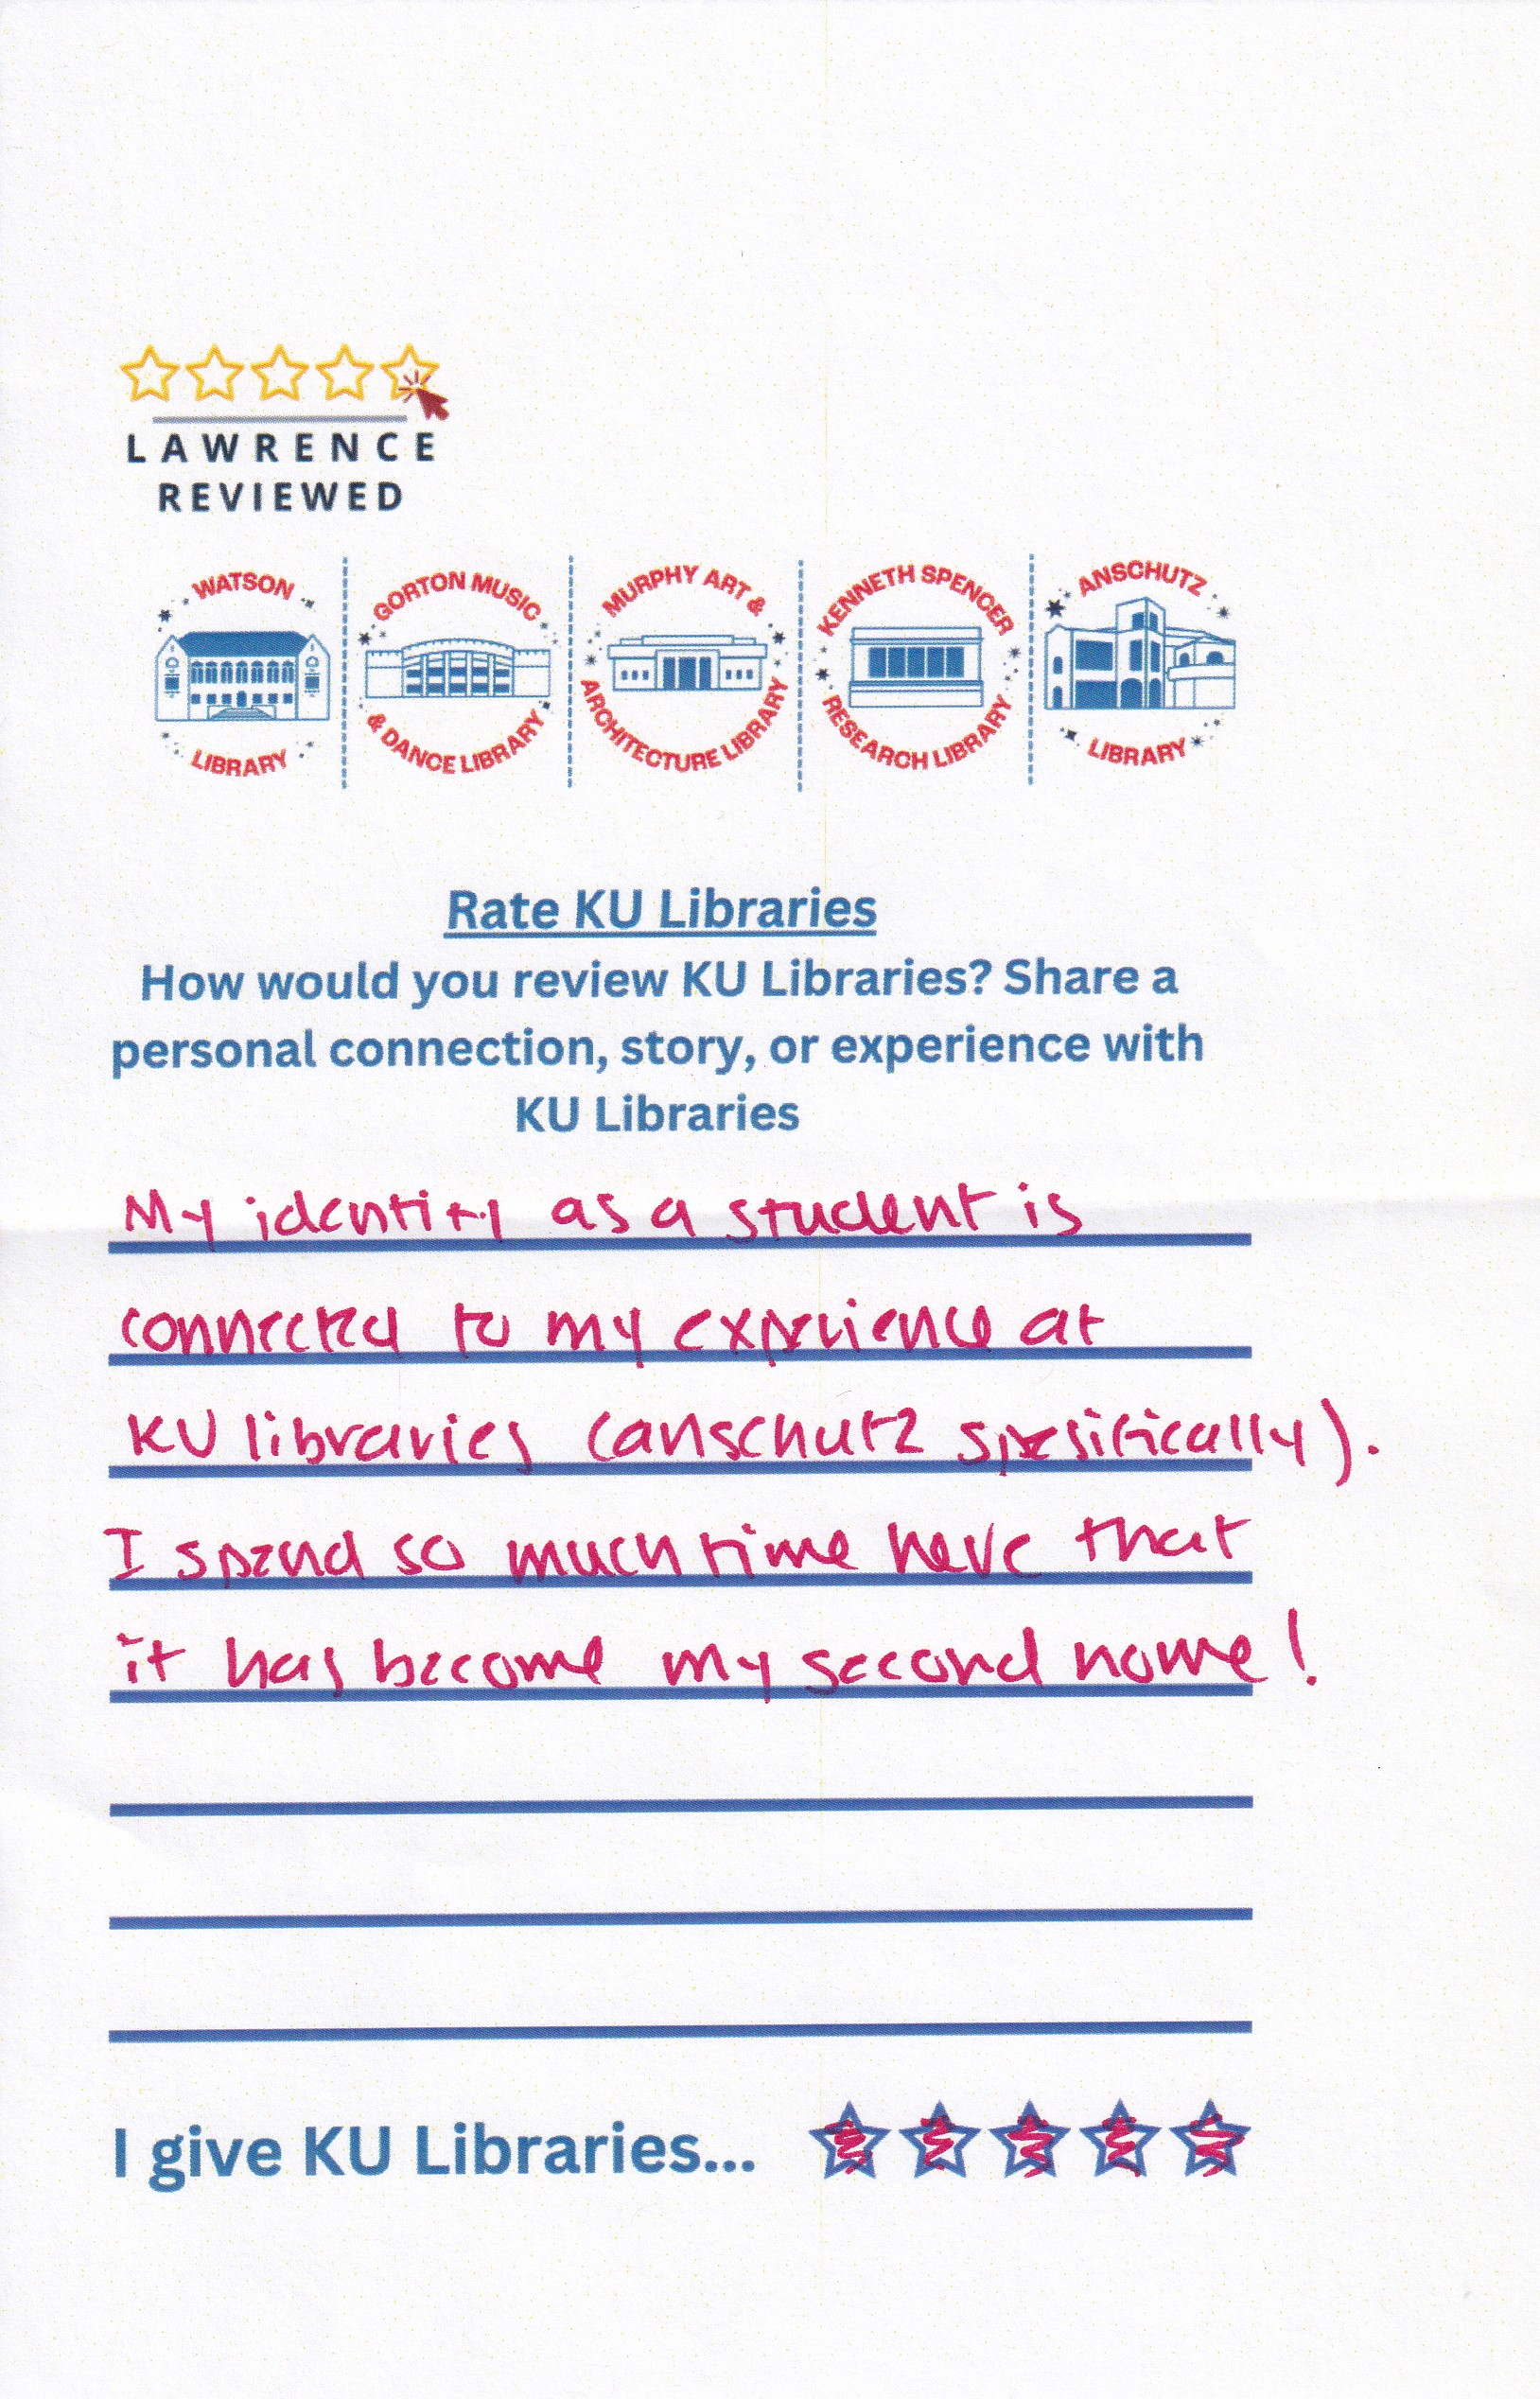 LAWRENCE
REVIEWED
WATSON LIBRARY
GORTON MUSIC & DANCE LIBRARY
MURPHY ART & ARCHITECTURE LIBRARY
KENNETH SPENCER RESEARCH LIBRARY
ANSCHUTZ LIBRARY
Rate KU Libraries
How would you review KU Libraries? Share a
personal connection, story, or experience with
KU Libraries
My identity as a student is
connected to my experience at
KU libraries (anschutz spesifically).
I spend so much time here that
it has become my second home!
I give KU Libraries...